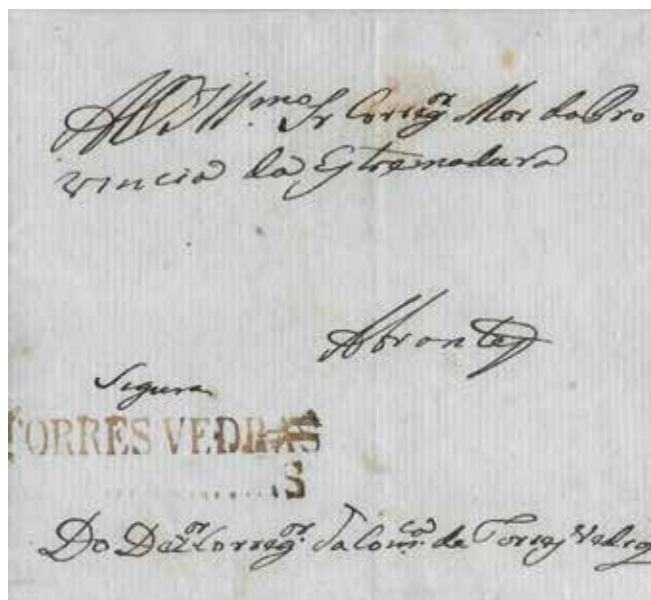 Ao Illmo Sr Correg.or Mor da Pro
vincia da Estremadura
Abrantes
Segura
TORRES VEDRAS
S
Do Dez.or Correg.or da Com.ca de Torres Vedras